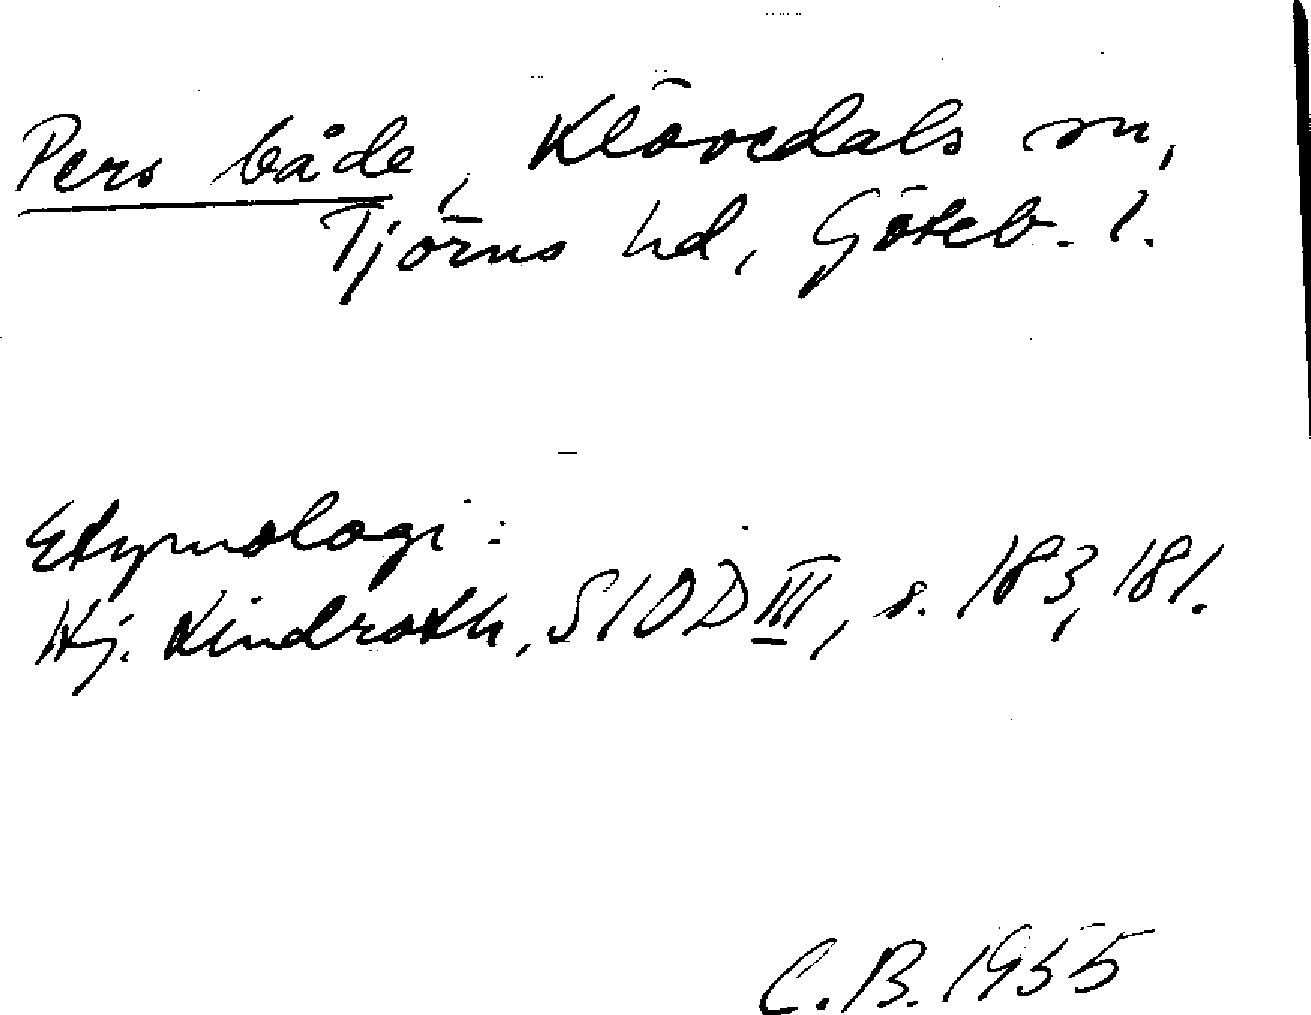 Pers både, Klövedals sn,
Tjörns hd, Göteb. l.
Etymologi:
Hj. Lindroth, SIOD III, s. 183, 181.
C.B. 1955